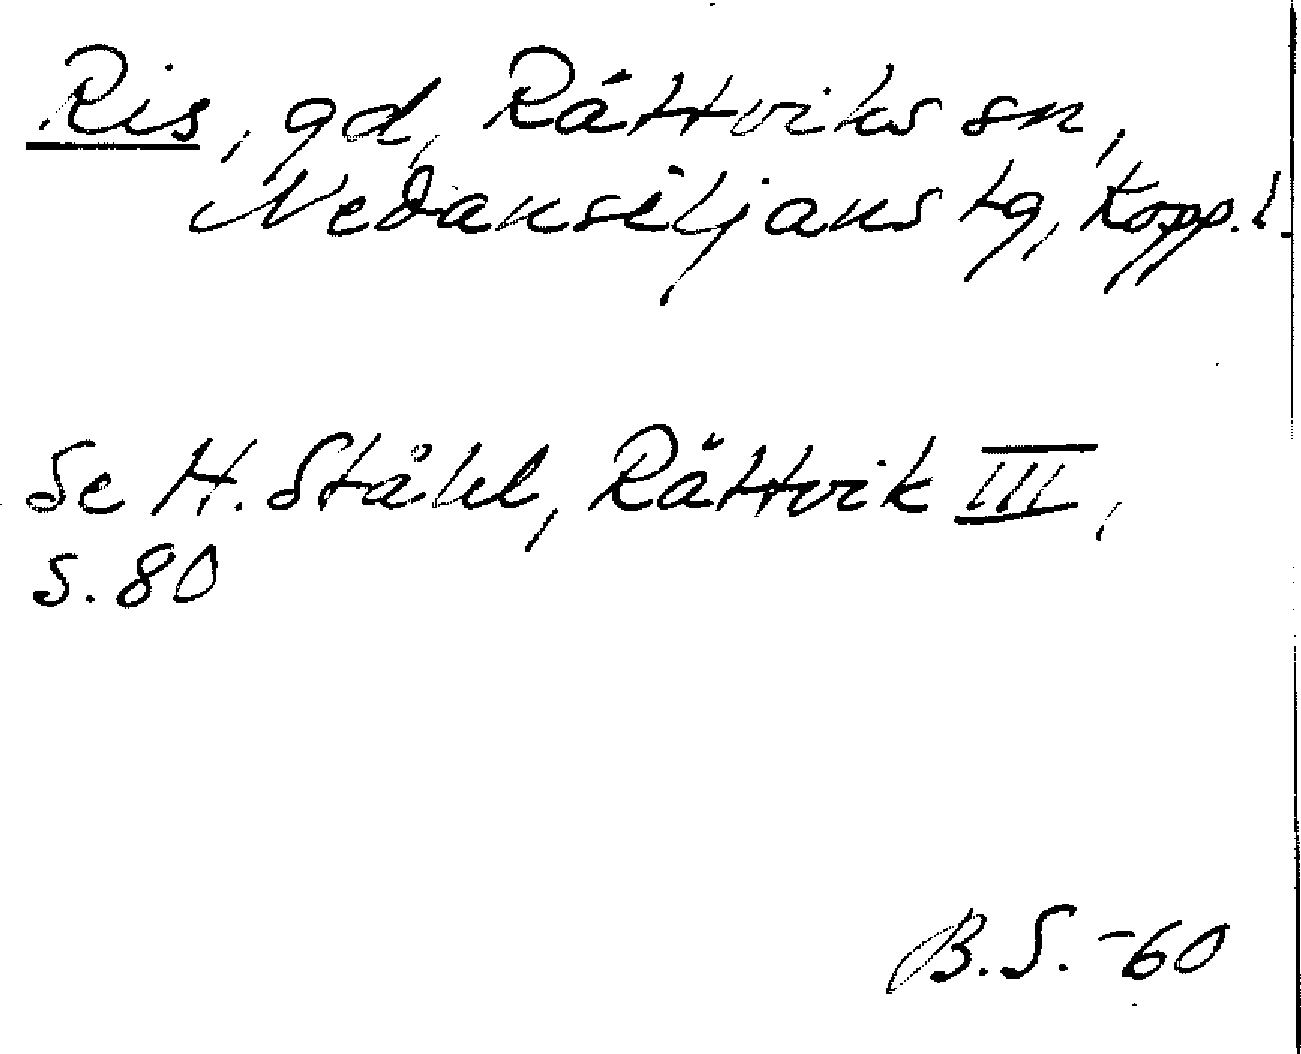 Ris, gd, Rättviks sn,
Nedansiljans tg, Kopp. l.
Se H. Ståhl, Rättvik III,
s. 80
B.S. -60